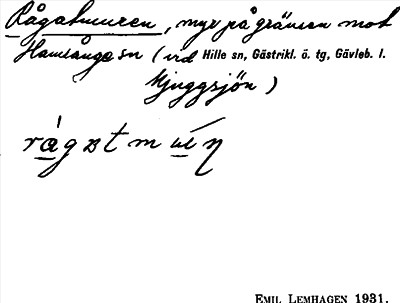 Rågatmuren, myr på gränsen mot
Hamrånge sn (vid Hille sn, Gästrikl. ö. tg, Gävleb. l.
Hjuggsjön)
EMIL LEMHAGEN 1931.